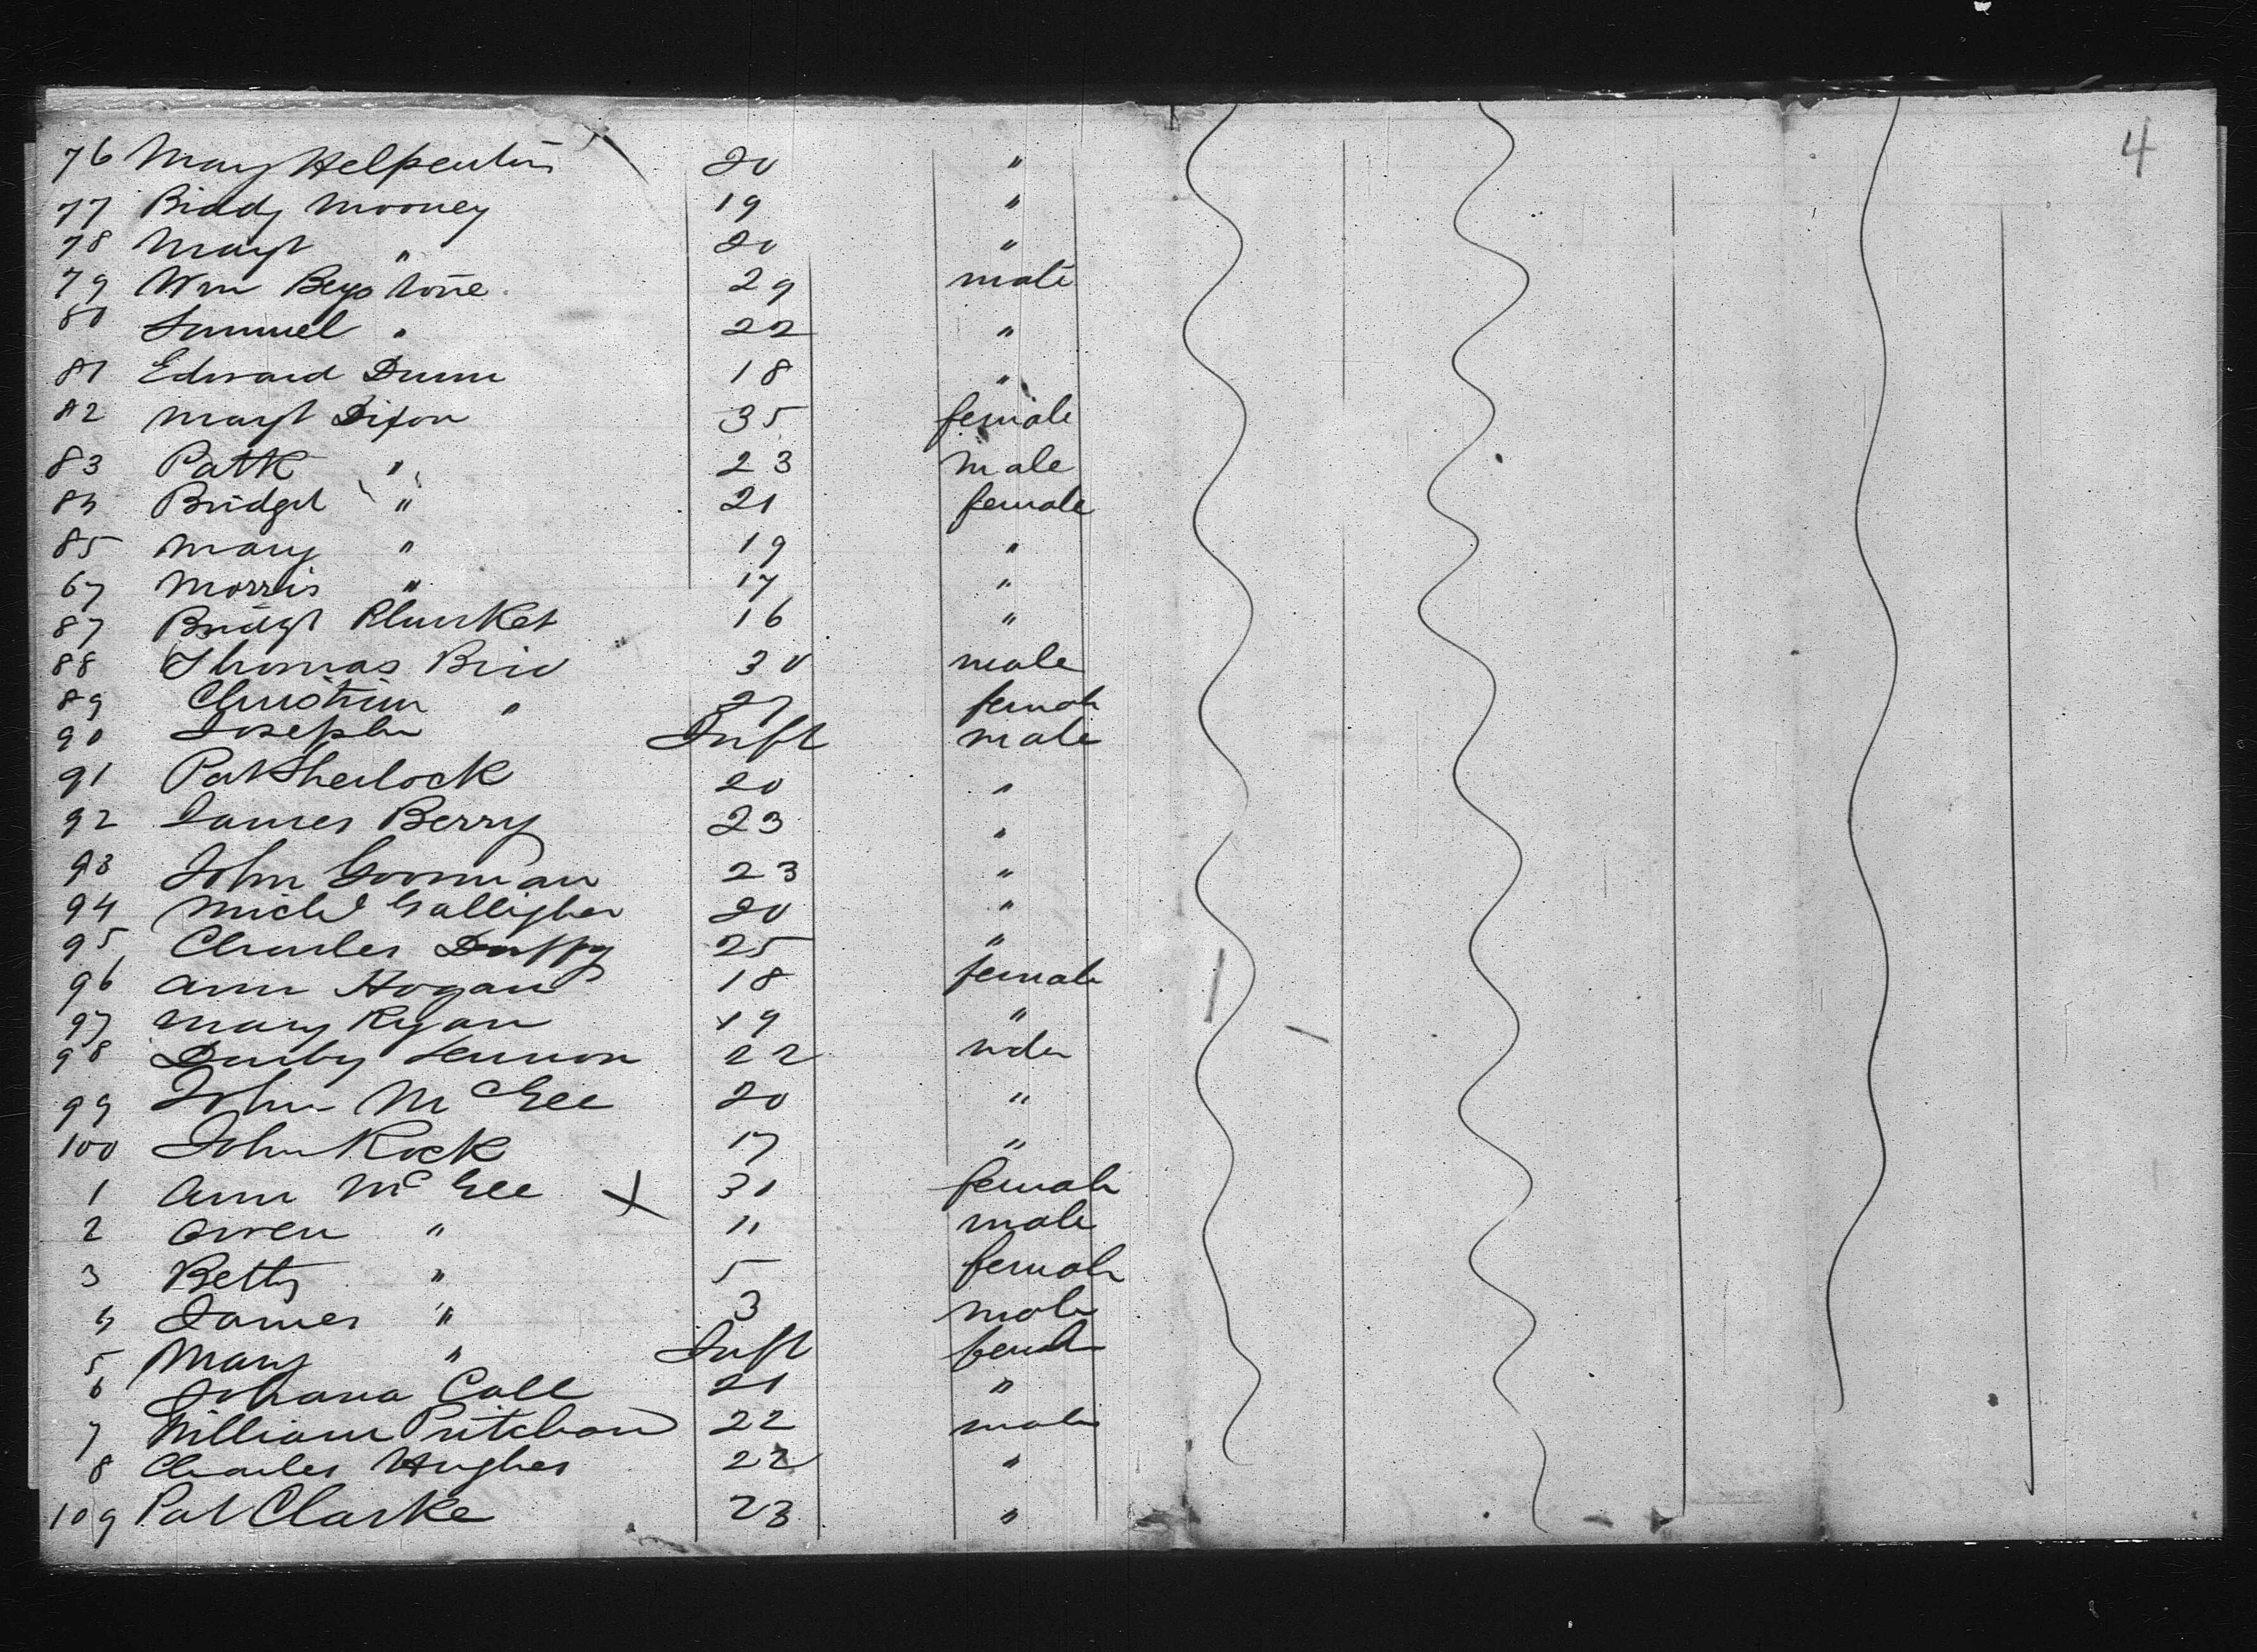 4
76 Mary Helpentin 20 "
77 Biddy Mooney 19 "
78 Margt " 20 "
79 Wm 29 male
80 Samuel " 22 "
81 Edward Dunn 18 "
82 Margt Dixon 35 female
83 Patk " 23 male
84 Bridget " 21 female
85 Mary " 19 "
67 Morris " 17 "
87 Bridgt Plunket 16 "
88 Thomas 30 male
89 Christian " 27 female
90 Joseph Inft male
91 Pat Sherlock 20 "
92 James Berry 23 "
93 John Goonman 23 "
94 Michl Galligher 20 "
95 Charles Duffy 25 "
96 Ann Hogan 18 female
97 Mary Ryan 19 "
98 Darby Lennon 22
99 John McGee 20 "
100 John Rock 17 "
1 Ann McGee X 30 female
2 Owen " 11 male
3 Betty " 5 female
4 James " 3 male
5 Mary " Inft female
6 Johana Call 21 "
7 William Pritchard 22 male
8 Charles Hughes 22 "
109 Pat Clarke 23 "